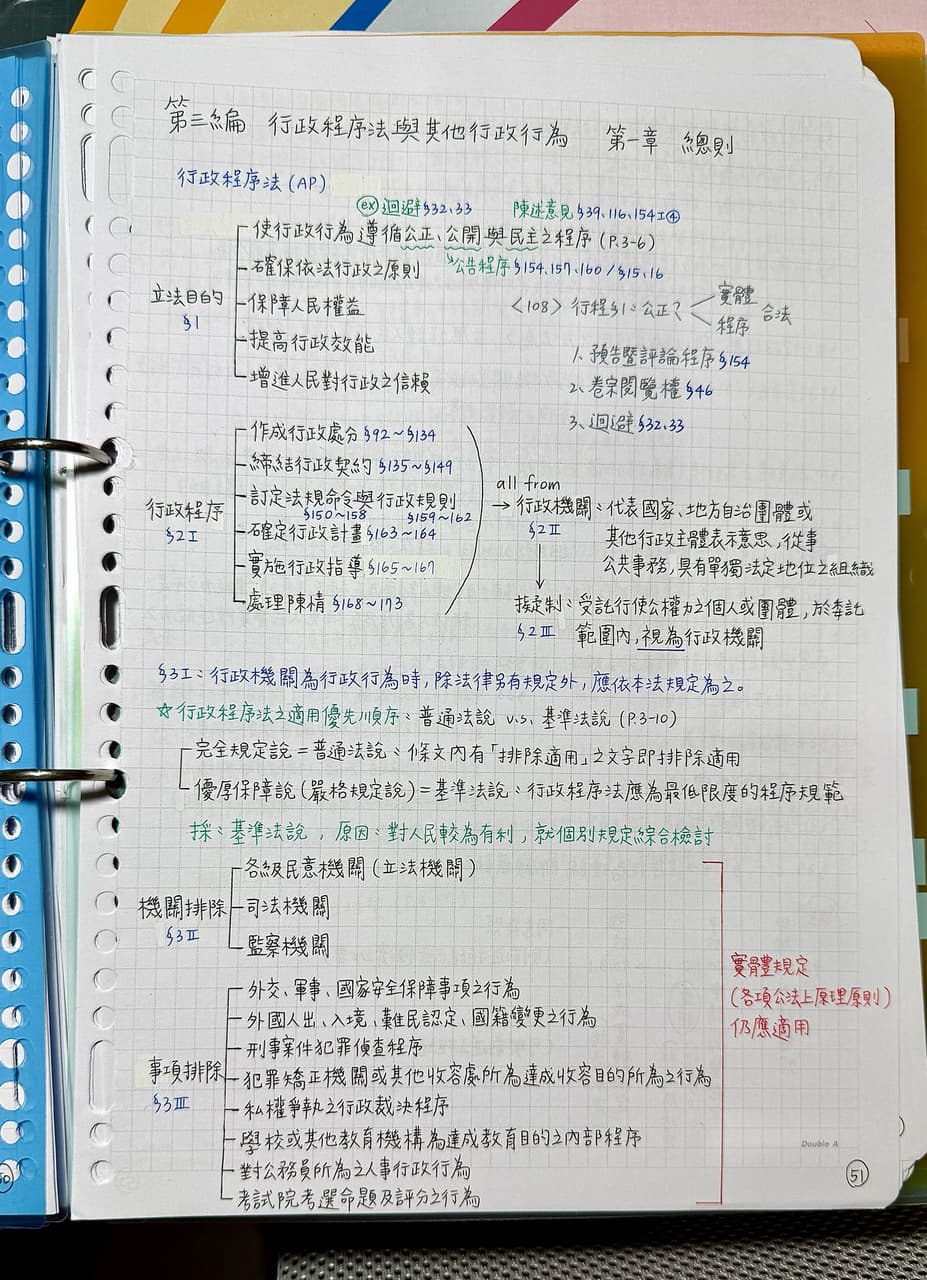 第三編 行政程序法與其他行政行為 第一章 總則
行政程序法(AP)
ex 迴避§32、33 陳述意見§39、116、154I④
立法目的
§1
使行政行為遵循公正、公開與民主之程序(P.3-6)
確保依法行政之原則
公告程序§154、157、160/§15、16
保障人民權益
提高行政效能
增進人民對行政之信賴
<108>行程§1:公正?
實體
程序
合法
1、預告暨評論程序§154
2、卷宗閱覽權§46
3、迴避§32、33
行政程序
§2I
作成行政處分§92~§134
締結行政契約§135~§149
訂定法規命令與行政規則
§150~158 §159~162
確定行政計畫§163~164
實施行政指導§165~167
處理陳情§168~173
all from
→行政機關:代表國家、地方自治團體或
§2II
其他行政主體表示意思,從事
公共事務,具有單獨法定地位之組織
擬定制:受託行使公權力之個人或團體,於委託
§2III
範圍內,視為行政機關
§3I:行政機關為行政行為時,除法律另有規定外,應依本法規定為之。
☆行政程序法之適用優先順序:普通法說 v.s. 基準法說(P.3-10)
完全規定說=普通法說:條文內有「排除適用」之文字即排除適用
優厚保障說(嚴格規定說)=基準法說:行政程序法應為最低限度的程序規範
採:基準法說,原因:對人民較為有利,就個別規定綜合檢討
機關排除
§3II
各級民意機關(立法機關)
司法機關
監察機關
事項排除
§3III
外交、軍事、國家安全保障事項之行為
外國人出、入境、難民認定、國籍變更之行為
刑事案件犯罪偵查程序
犯罪矯正機關或其他收容處所為達成收容目的所為之行為
私權爭執之行政裁決程序
學校或其他教育機構為達成教育目的之內部程序
對公務員所為之人事行政行為
考試院考選命題及評分之行為
實體規定
(各項公法上原理原則)
仍應適用
Double A
51